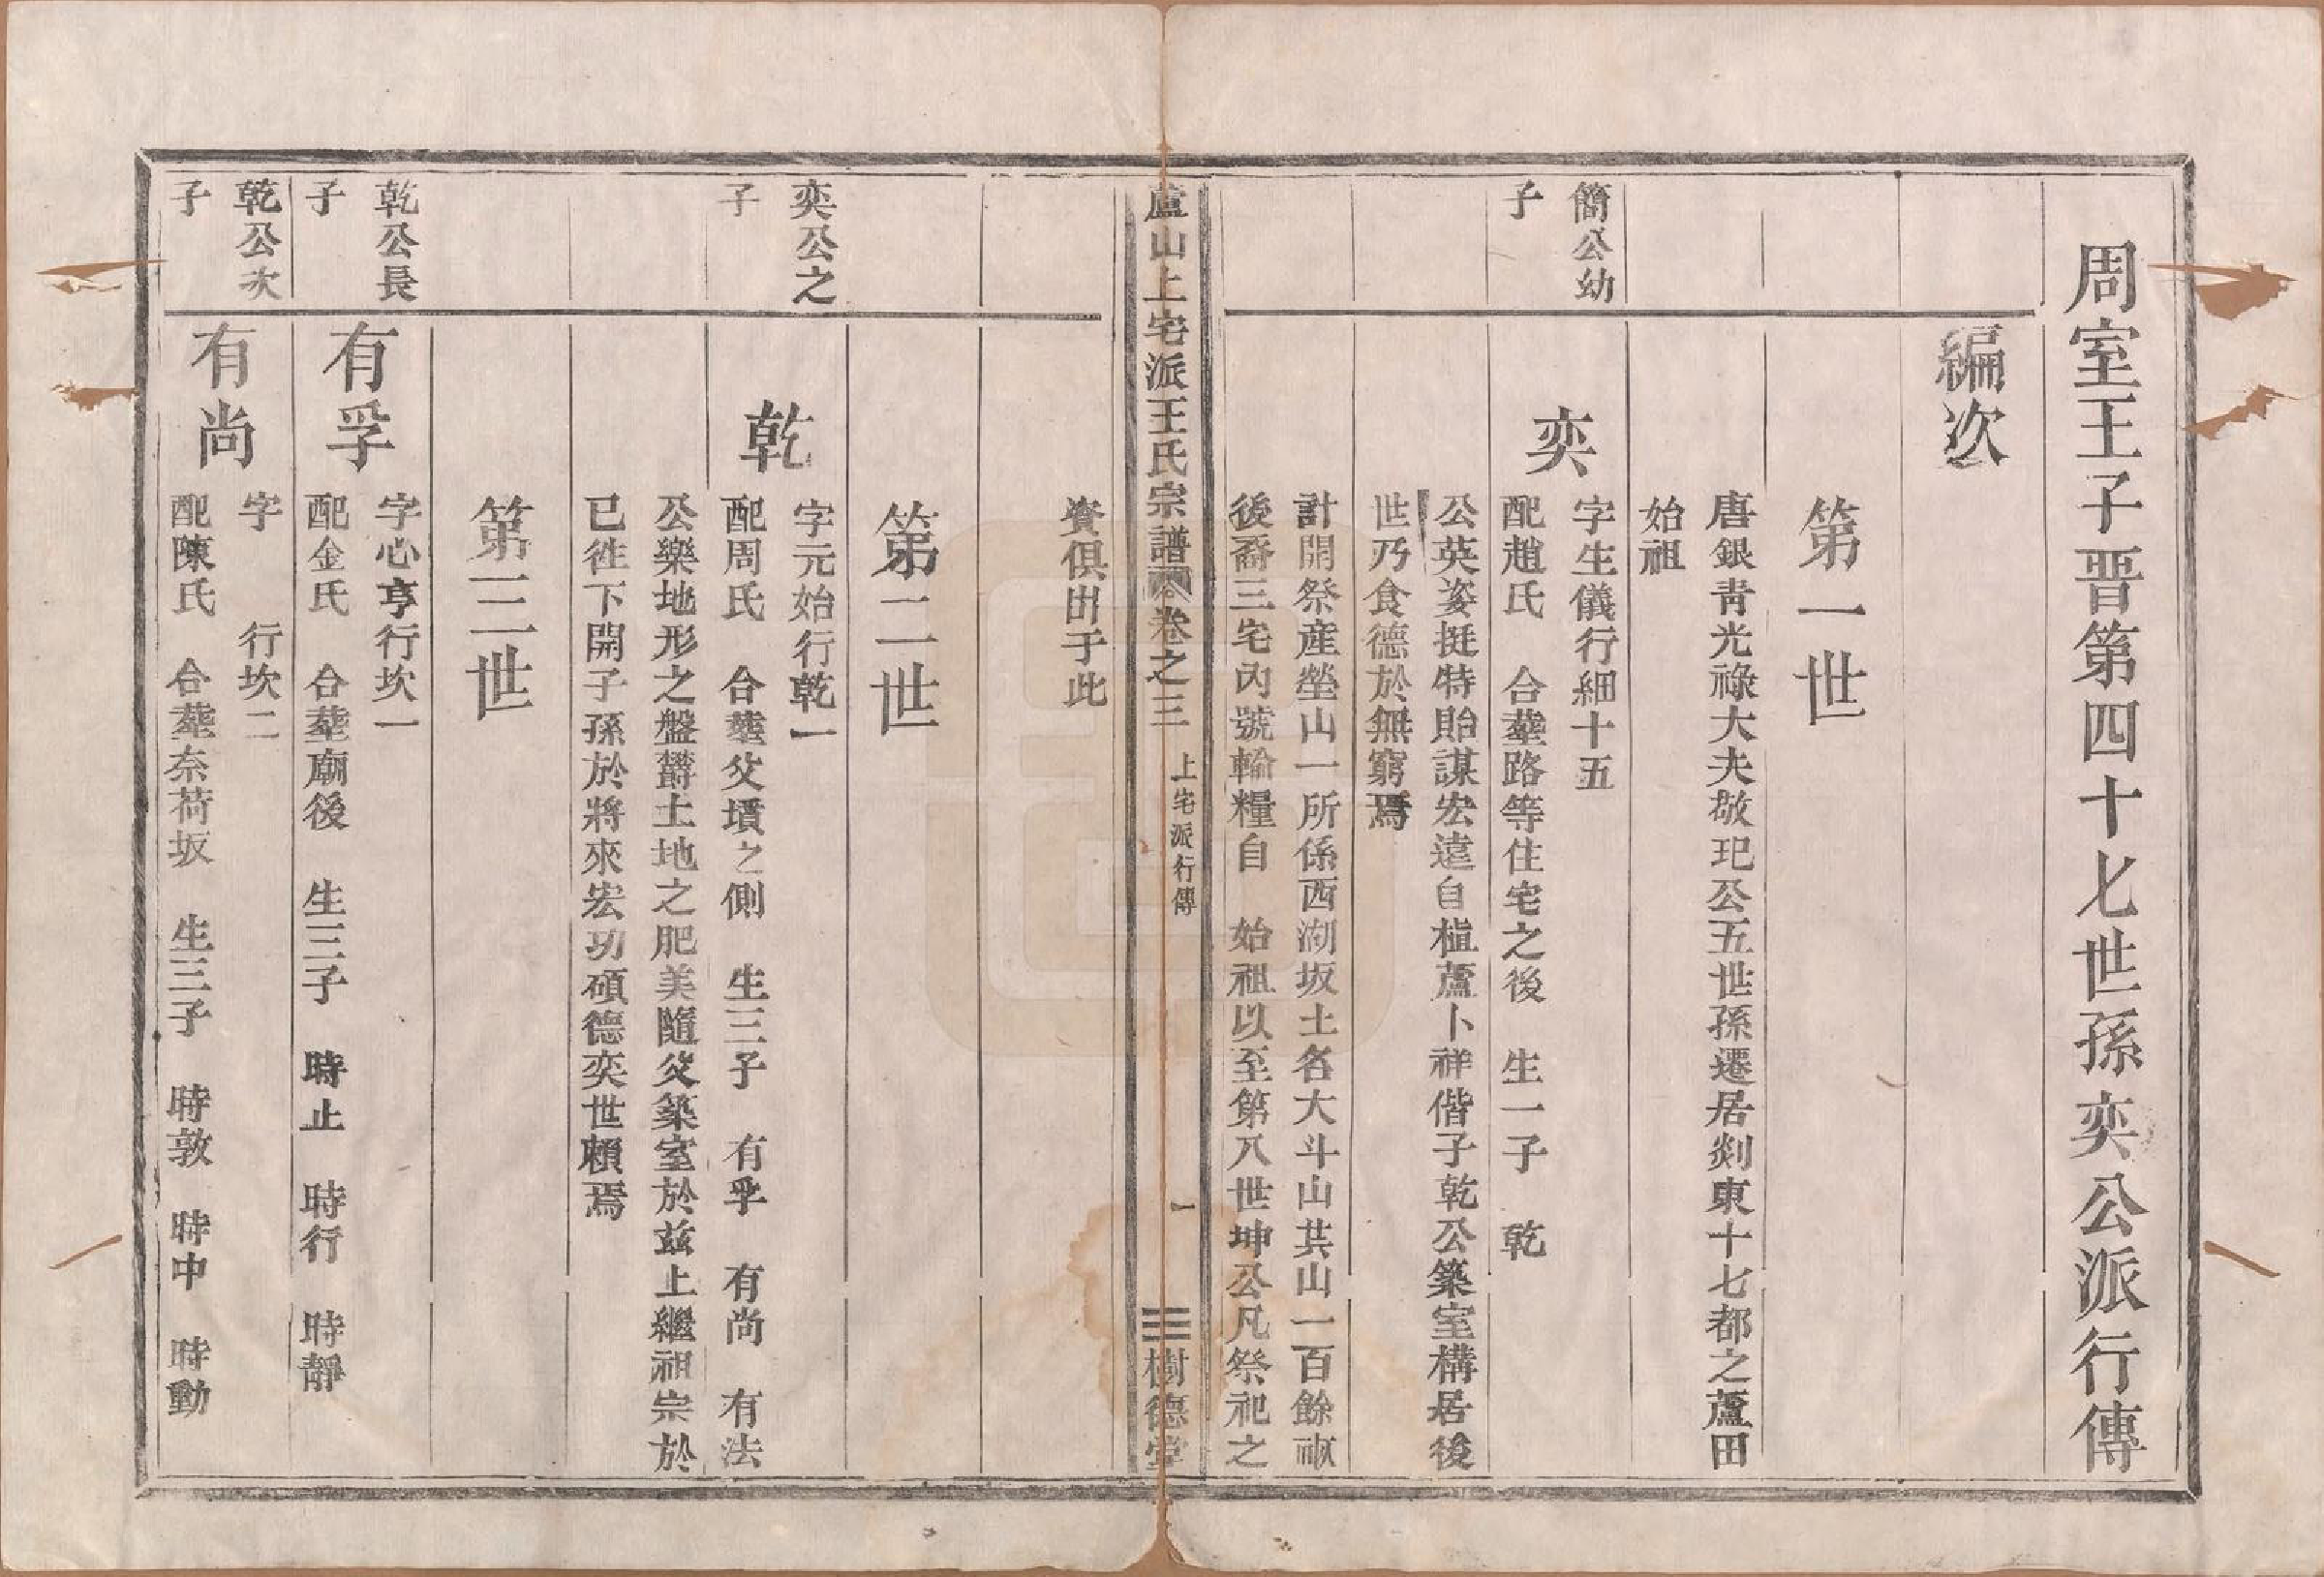 周室王子晋第四十七世孫奕公派行傳
編次
第一世
唐銀青光祿大夫敬玘公五世孫遷居剡東十七都之蘆田
始祖
簡公幼
子
奕
字生儀行細十五
配趙氏 合塟路等住宅之後 生一子 乾
公英姿挺特貽謀宏遠自植蘆卜祥偕子乾公築室構居後
世乃食德於無窮焉
計開祭産塋山一所係西湖坂土名大斗山共山一百餘畝
後裔三宅內號輸糧自 始祖以至第八世坤公凡祭祀之
蘆山上宅派王氏宗譜 卷之三 上宅派行傳 一 三樹德堂
資俱出于此
第二世
奕公之
子
乾
字元始行乾一
配周氏 合塟父墳之側 生三子 有孚 有尚 有法
公樂地形之盤欝土地之肥美隨父築室於兹上繼祖宗於
已徃下開子孫於將來宏功碩德奕世賴焉
第三世
乾公長
子
有孚
字心亨行坎一
配金氏 合塟廟後 生三子 時止 時行 時靜
乾公次
子
有尚
字 行坎二
配陳氏 合塟奈荷坂 生三子 時敦 時中 時動